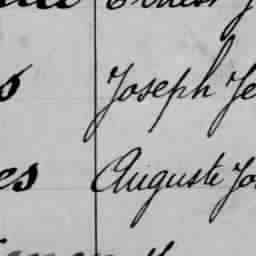 Ernest J
s Joseph Je
es Auguste Jo